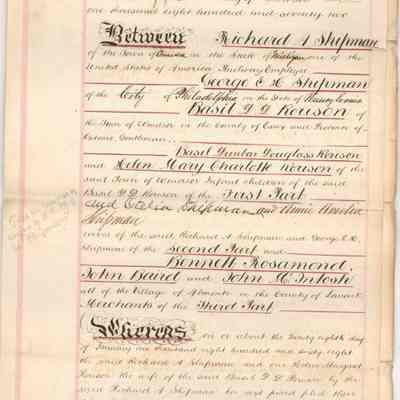 one thousand eight hundred and seventy two
Between Richard A Shipman
of the Town of in the State of Michigan one of the
United States of America Railway Employee
George E. H. Shipman
of the City of Philadelphia in the State of Pennsylvania
Basil D D Rouson of
the Town of Windsor in the County of Essex and Province of
Ontario Gentleman
Basil Dunbar Douglass Rouson
and Helen Mary Charlotte Rouson of the
said Town of Windsor Infant children of the said
Basil D D Rouson of the First Part
and Otelia Shipman and Annie Amelia
Shipman
wives of the said Richard A Shipman and George E. H.
Shipman of the Second Part and
Bennett Rosamond,
John Baird and John McIntosh
all of the Village of Almonte in the County of Lanark
Merchants of the Third Part
Whereas on or about the twenty eighth day
of January one thousand eight hundred and sixty eight
the said Richard A Shipman and one Helen Margaret
Rouson the wife of the said Basil D. D. Rouson by the
said Richard A Shipman her next friend filed their